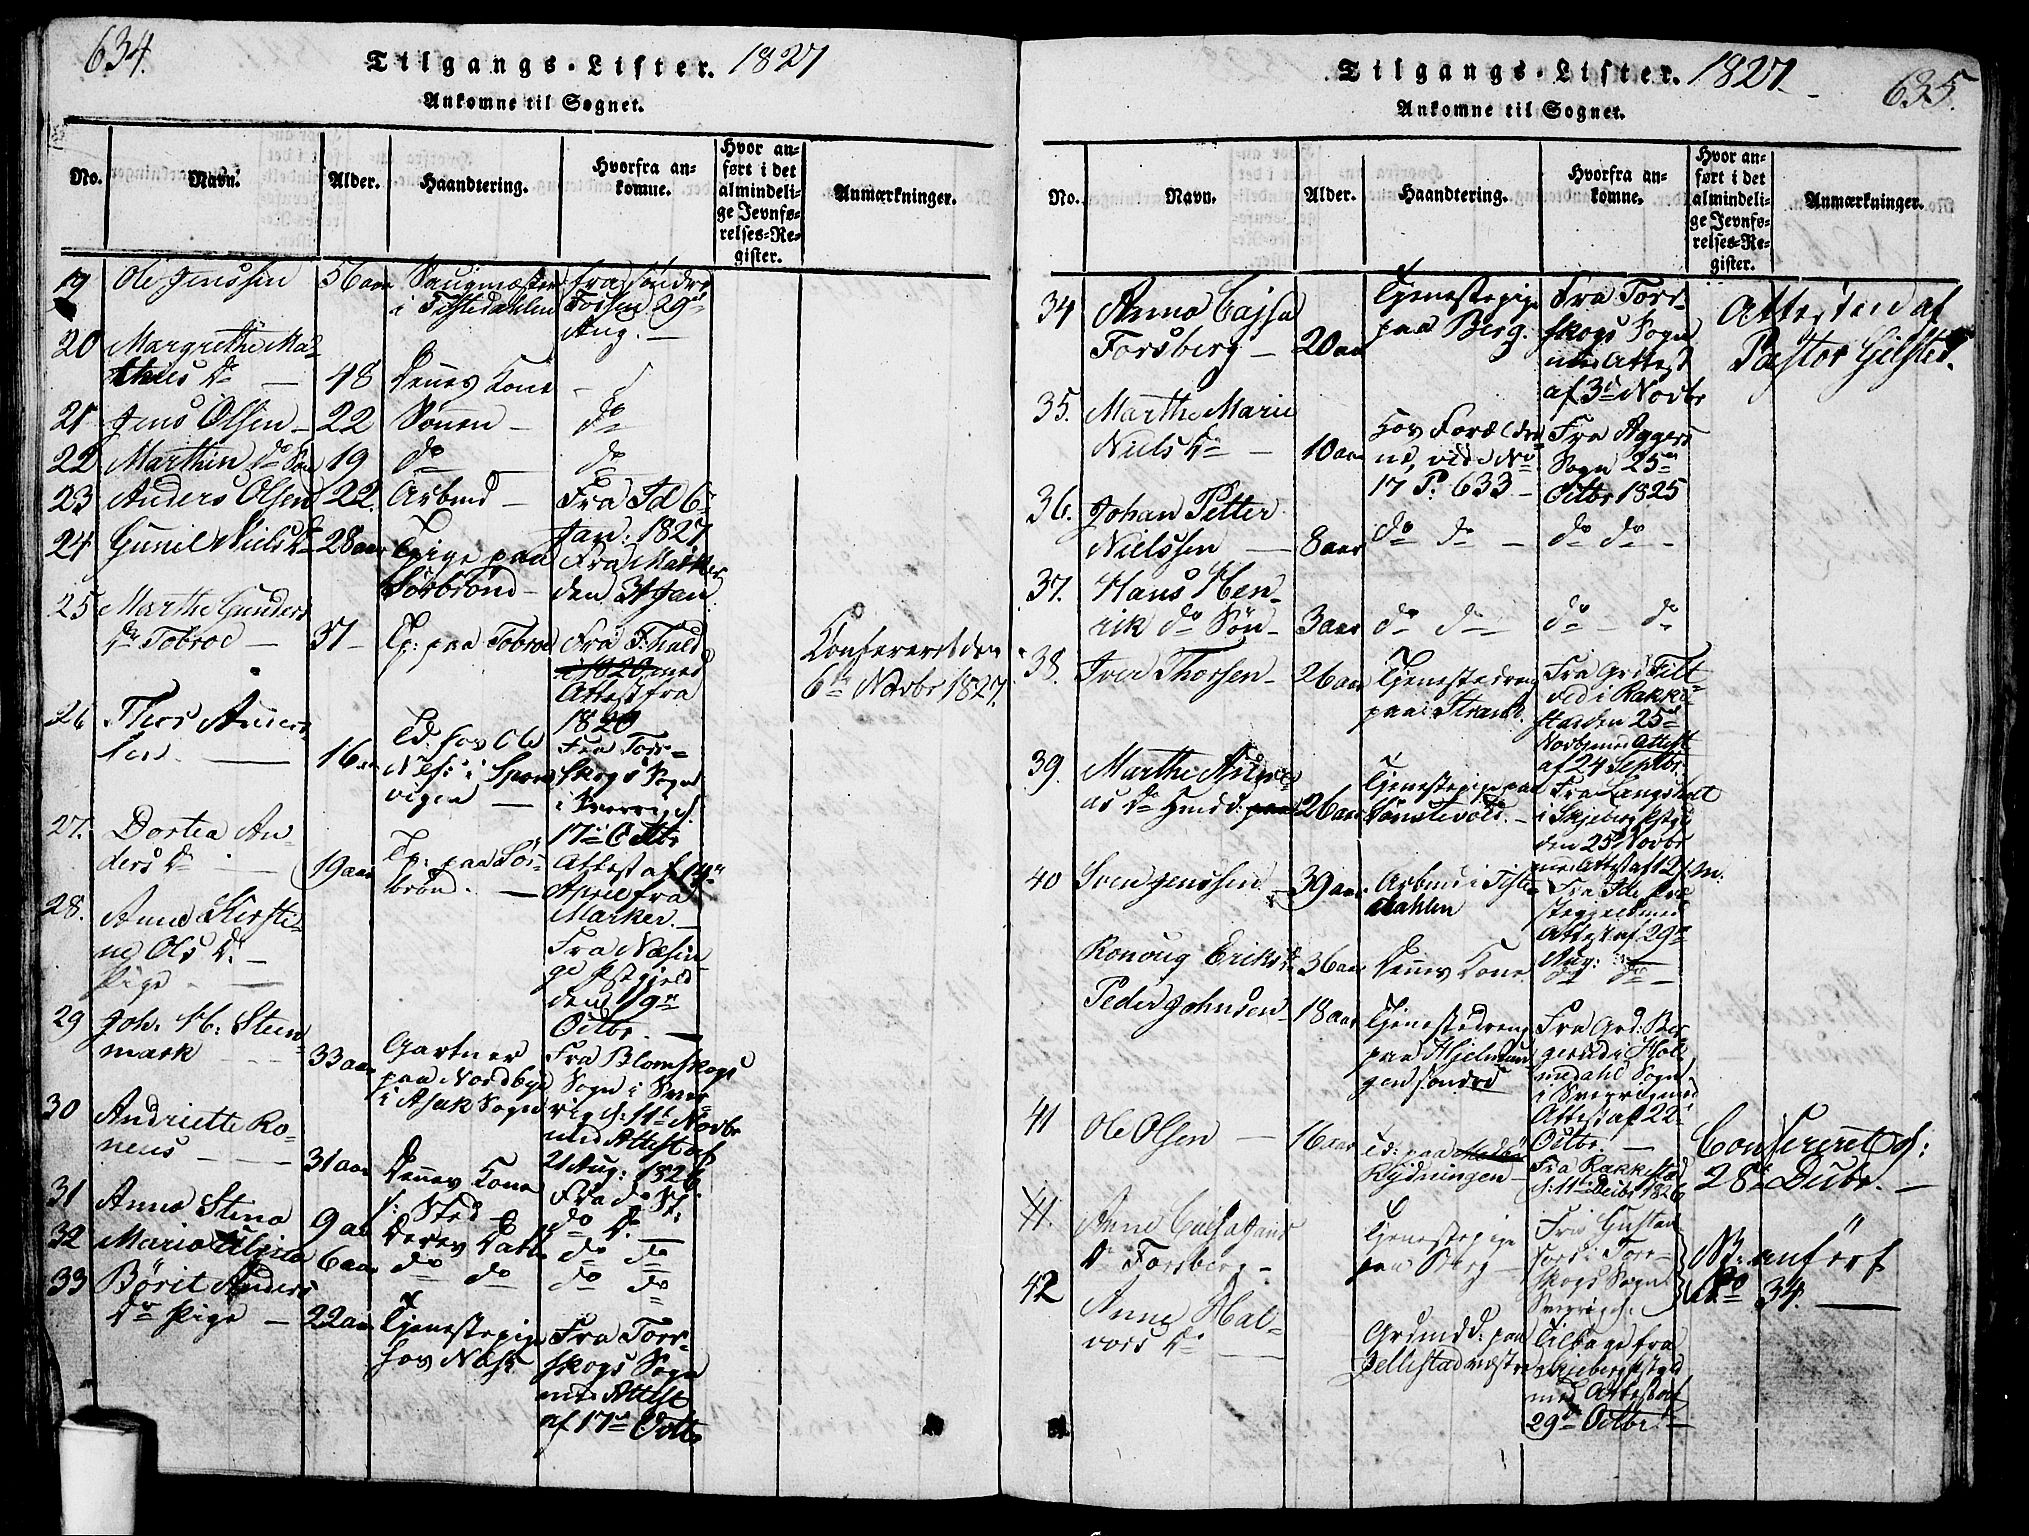 634.
Tilgangs-Lister. 1827
Ankomne til Sognet.
No.
Navn.
Alder.
Haandtering.
Hvorfra an-
komne.
Hvor an-
ført i det
almindeli-
ge Jevnfø-
relses-Re-
gister.
Anmærkninger.
19
Ole Jenssen
56 aar
Saugmæster
i Tistedahlen
fra Søndre
Torsen 29de
Aug. —
20
Margrethe Ma-
thies Dr —
48
Dennes Kone
21
Jens Olsen —
22
Sønnen —
do
22
Marthin do Søn
19
do
do
23
Anders Olsen
22
Arbmd —
Fra Id 6
Jan: 1827
24
Gunil Niels Dr
28 aar
Tpige paa
Sørbrønd —
Fra Marker
den 31 Jan
25
Marthe Gunders
Dr Tobroe —
31 —
Tp: paa Tobroe
Fra F:hald
med
Attest fra
1820
Confereret den
6te Novbr 1827.
26
Thors Anders-
sen. —
16 aar
Td: hos Ole
Niels: i Spon-
vigen —
Fra Torr-
skogs Sogn
i Sverrig d.
17de Octbr
27.
Dortea An-
ders Dr —
19 aar
Tp: paa Sør-
brønd. —
Attest af 14de
April fra
Marker. —
28.
Anne Kirsti-
ne Ols Dr. —
Pige —
Fra Næsin-
ge Pstgjeld
den 19de
Octbr. —
29
Joh. H: Steen-
mark —
33 aar
Gartner
paa Nordbye
i Asak Sogn
Fra Blomskogs
Sogn i Sver-
rig d. 11te Novbr
med Attest af
21 Aug: 1826
30
Andriette Ro-
neus —
31 aar
Dennes Kone
f: Sted —
Fra do St:
31
Anna Stina
9 aar
Deres Datt
do do —
32
Maria Ulrica
6 aar
do do
do do
33
Børit Anders
Dr Pige —
22 aar
Tjenestepige
hos Næss
Fra Torr-
skogs Sogn
med Attest
af 17de Octbr
Tilgangs-Lister. 1827.
635.
Ankomne til Sognet.
No.
Navn.
Alder.
Haandtering.
Hvorfra an-
komne.
Hvor an-
ført i det
almindeli-
ge Jevnfø-
relses-Re-
gister.
Anmærkninger.
34
Anna Cajsa
Forsberg —
20 aar
Tjenestepige
paa Berg.
Fra Torr-
skogs Sogn
med Attest
af 3de Novbr
Attesten af
Pastor Gilsted.
35.
Marthe Marie
Niels Dr —
10 aar
Hos Forældre
ne, vide No
17 P. 633 —
Fra Aggers
Sogn 25de
Octbr 1825
36.
Johan Petter
Nielssen —
8 aar
do do —
do do —
37.
Hans Hen-
rik do Søn —
3 aar
do do
do — do
38.
Iver Thorsen —
26 aar
Tjenestedreng
paa Strand.
Fra Grd Tilt-
ved i Rakke-
stad den 25de
Novb med Attest
af 24 Septbr —
39.
Marthe Andre-
as Dr
26 aar
Tjenestepige paa
Tønstevold. —
Fra Langsholt
i Skjeberg Pstgd
den 25 Novbr
med Attest af 12 f: M.
40
Sven Jenssen —
39 aar
Arbmd i Tiste-
dahlen
Fra Ide Præ-
stegjeld med
Attest af 29de
Aug: —
Ronoug Eriks Dr
36 aar
Dennes Kone
do do —
Peder Johnsen —
18 aar
Tjenestedreng
paa Hjelmun-
gen søndre
Fra Grd: Ber-
gerud i Hol-
medahl Sogn
i Sverrig med
Attest af 22de
Octbr. —
41
Ole Olsen —
16 aar
Td: paa
Rydningen —
Fra Rakkestad
d: 11te Decbr 1826
Confereret d:
28de Decbr. —
41.
Anne Caisa Hans
Dr Forsberg —
Tjenestepige
paa Berg —
Fra Gustan-
fors i Torr-
skogs Sogn
Sverrige.
NB: anført
No 34. —
42
Anne Hal-
vors Dr —
Grdmdd: paa
Jellestad væstre
Tilbage fra
Skjeberg Pstgd
med Attest af
29de Octbr —